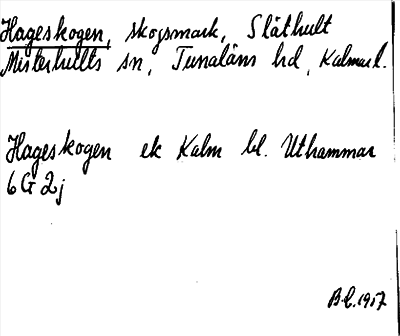 Hageskogen, skogsmark, Släthult
Misterhults sn, Tunaläns hd, Kalmar l.
Hageskogen ek Kalm bl. Uthammar
6G 2j
B.L. 1957